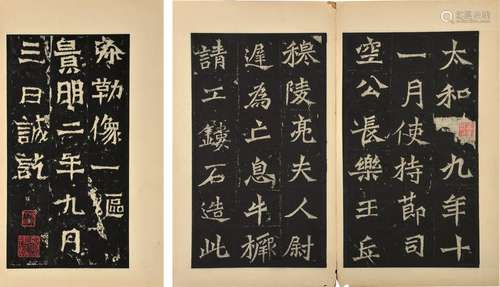 太和九年十
一月使持節司
空公長樂王丘
穆陵亮夫人尉
遲為亡息牛橛
請工鏤石造此
弥勒像一區
景明二年九月
三日誠訖